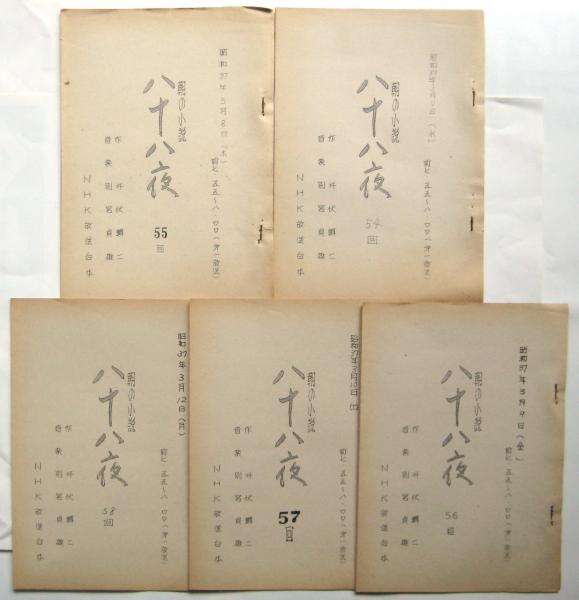 昭和37年3月8日(木)
朝の小説
八十八夜
前七・五五~八・〇〇(第一放送)
作 井伏鱒二
音楽 別宮貞雄
55
回
NHK放送台本
朝の小説
八十八夜
前七・五五~八・〇〇(第一放送)
作 井伏鱒二
音楽 別宮貞雄
54
回
NHK放送台本
昭和37年3月12日(月)
朝の小説
八十八夜
前七・五五~八・〇〇(第一放送)
作 井伏鱒二
音楽 別宮貞雄
58
回
NHK放送台本
昭和37年3月10日(土)
朝の小説
八十八夜
前七・五五~八・〇〇(第一放送)
作 井伏鱒二
音楽 別宮貞雄
57
回
NHK放送台本
昭和37年3月9日(金)
朝の小説
八十八夜
前七・五五~八・〇〇(第一放送)
作 井伏鱒二
音楽 別宮貞雄
56
回
NHK放送台本